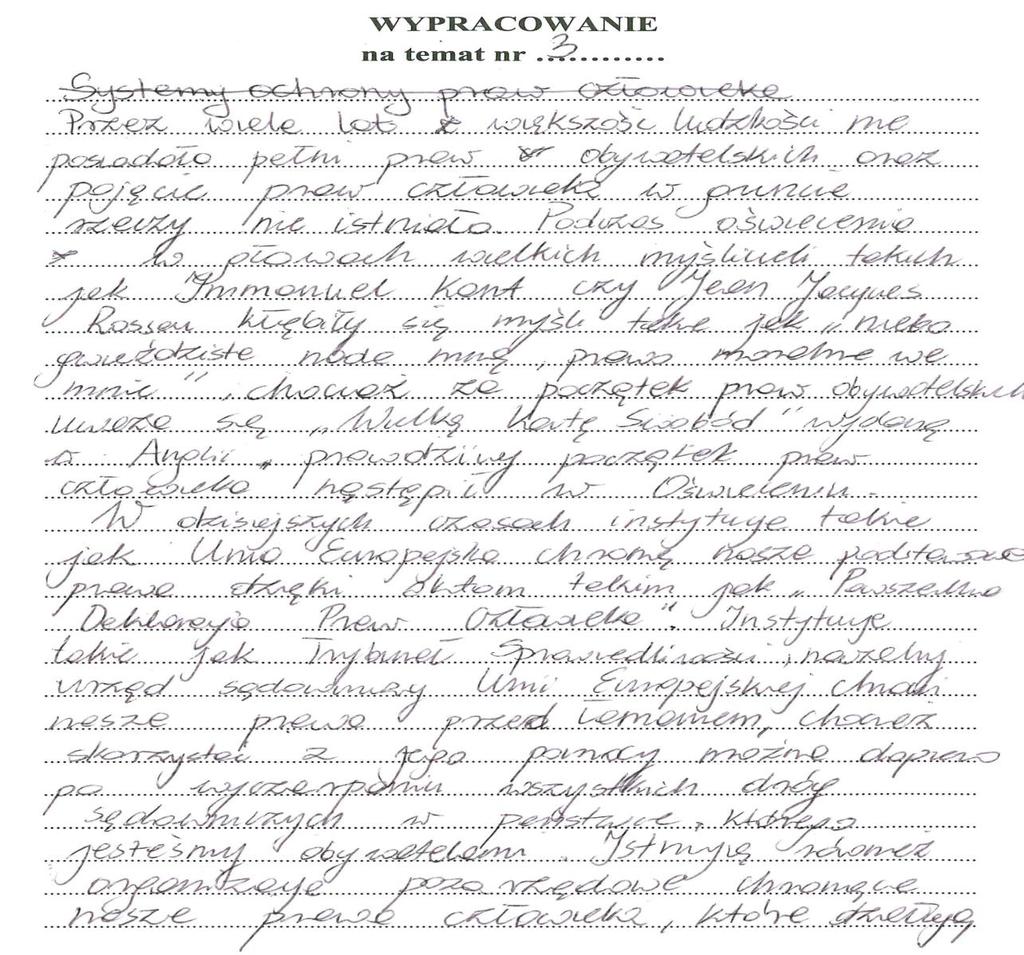 WYPRACOWANIE
na temat nr 3
Systemy ochrony praw człowieka
Przez wiele lat większość ludzkości nie
posiadało pełni praw obywatelskich oraz
pojęcie praw człowieka w gruncie
rzeczy nie istniało. Podczas oświecenia
w głowach wielkich myślicieli takich
jak Immanuel Kant czy Jean Jacques
Rosseu kłębiły się myśli takie jak „niebo
gwieździste nade mną, prawo moralne we
mnie", chociaż za początek praw obywatelskich
uważa się „Wielką Kartę Swobód" wydaną
w Anglii, prawdziwy początek praw
człowieka nastąpił w Oświeceniu.
W dzisiejszych czasach instytucje takie
jak Unia Europejska chronią nasze podstawowe
prawa dzięki aktom takim jak „Powszechna
Deklaracja Praw Człowieka". Instytucje
takie jak Trybunał Sprawiedliwości, naczelny
urząd sądowniczy Unii Europejskiej chroni
nasze prawa przed łamaniem, chociaż
skorzystać z jego pomocy można dopiero
po wyczerpaniu wszystkich dróg
sądowniczych w państwie, którego
jesteśmy obywatelami. Istnieją również
organizacje pozarządowe chroniące
nasze prawa człowieka, które działają